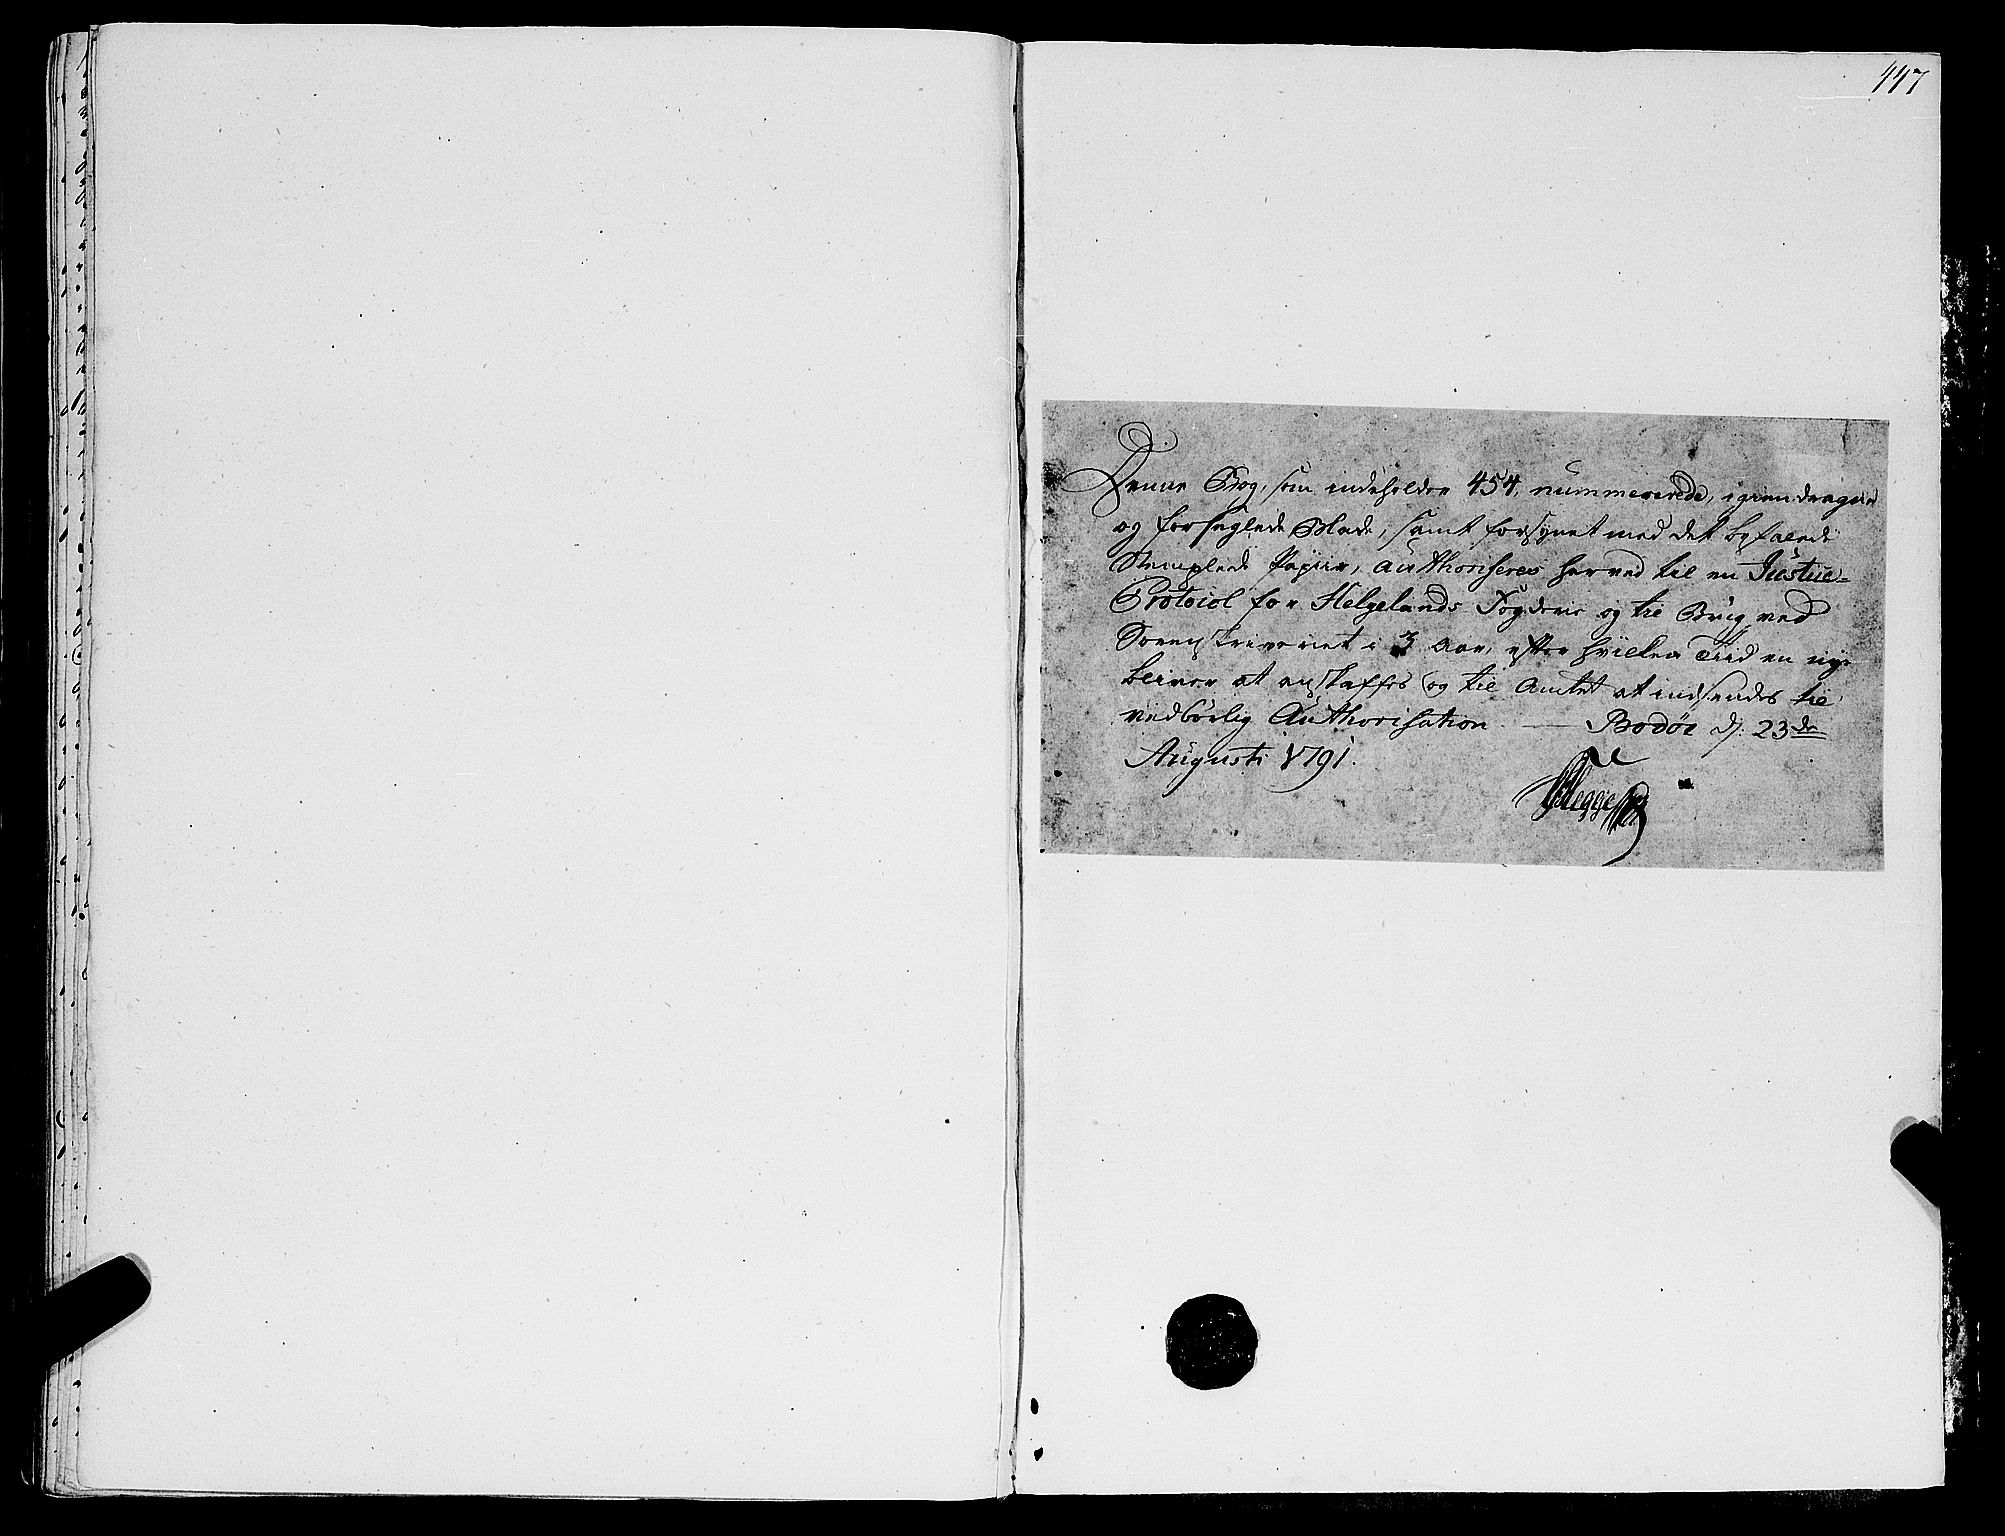 447
Denne Bog, som indeholder 454, nummererede, igiendragne
og forseglede Blade, samt forsynet med det befalede
Stemplede Papiir, authoriseres herved til en Justice-
Protocol for Helgelands Fogderie og til Brug ved
Sorenskriveriet i 3 Aar, efter hvilken Tiid en nye
bliver at anskaffes og til Amtet at indsendes til
vedbørlig Authorisation. — Bodøe d: 23de
Augusti 1791.